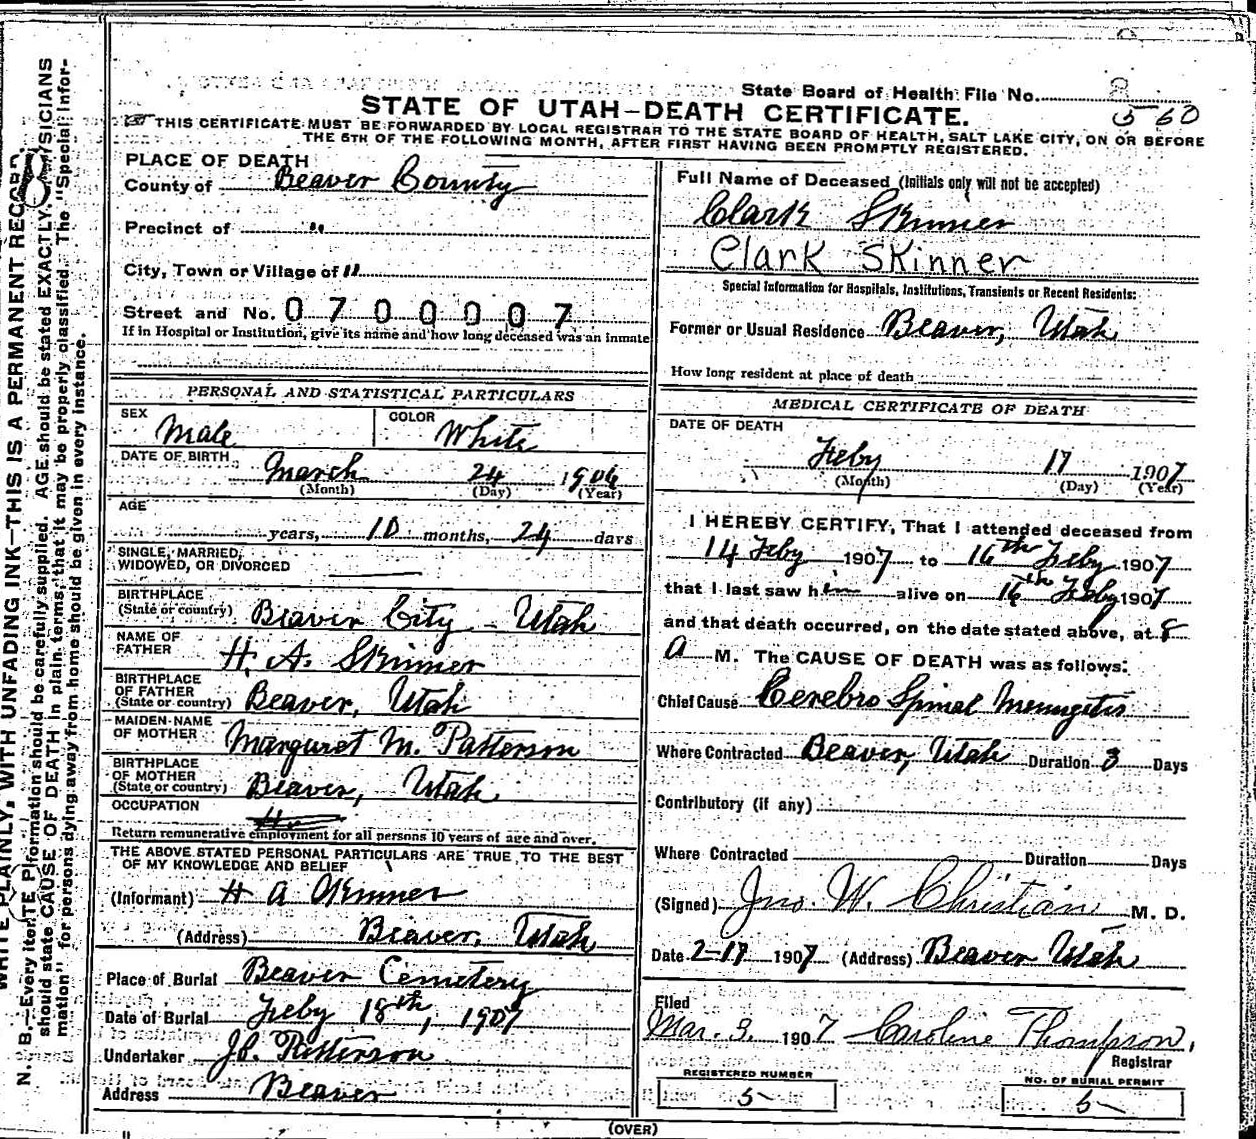 State Board of Health File No. 2
560
STATE OF UTAH—DEATH CERTIFICATE.
THIS CERTIFICATE MUST BE FORWARDED BY LOCAL REGISTRAR TO THE STATE BOARD OF HEALTH, SALT LAKE CITY, ON OR BEFORE
THE 5TH OF THE FOLLOWING MONTH, AFTER FIRST HAVING BEEN PROMPTLY REGISTERED.
PLACE OF DEATH
County of Beaver County
Precinct of "
City, Town or Village of "
Street and No. 0700007
If in Hospital or Institution, give its name and how long deceased was an inmate
PERSONAL AND STATISTICAL PARTICULARS
SEX Male COLOR White
DATE OF BIRTH March 24 1906
(Month) (Day) (Year)
AGE
years, 10 months, 24 days
SINGLE, MARRIED,
WIDOWED, OR DIVORCED
BIRTHPLACE
(State or country) Beaver City - Utah
NAME OF
FATHER H. A. Skinner
BIRTHPLACE
OF FATHER
(State or country) Beaver, Utah
MAIDEN NAME
OF MOTHER Margaret M. Patterson
BIRTHPLACE
OF MOTHER
(State or country) Beaver, Utah
OCCUPATION
Return remunerative employment for all persons 10 years of age and over.
THE ABOVE STATED PERSONAL PARTICULARS ARE TRUE TO THE BEST
OF MY KNOWLEDGE AND BELIEF
(Informant) H A Skinner
(Address) Beaver, Utah
Place of Burial Beaver Cemetery
Date of Burial Feby 18th, 1907
Undertaker Patterson
Address Beaver
Full Name of Deceased (Initials only will not be accepted)
Clark Skinner
Clark Skinner
Special Information for Hospitals, Institutions, Transients or Recent Residents:
Former or Usual Residence Beaver, Utah
How long resident at place of death
MEDICAL CERTIFICATE OF DEATH
DATE OF DEATH
Feby 17 1907
(Month) (Day) (Year)
I HEREBY CERTIFY, That I attended deceased from
14 Feby 1907 to 16th Feby 1907
that I last saw him alive on 16th Feby 1907
and that death occurred, on the date stated above, at 8
A M. The CAUSE OF DEATH was as follows:
Chief Cause Cerebro Spinal Meningetis
Where Contracted Beaver, Utah Duration 3 Days
Contributory (if any)
Where Contracted Duration Days
(Signed) Jno. W. Christian M. D.
Date 2-17 1907 (Address) Beaver Utah
Filed
Mar. 3. 1907 Caroline Thompson,
Registrar
REGISTERED NUMBER
5
NO. OF BURIAL PERMIT
5
(OVER)
WRITE PLAINLY, WITH UNFADING INK—THIS IS A PERMANENT RECORD.
N. B.—Every item of information should be carefully supplied. AGE should be stated EXACTLY. PHYSICIANS
should state CAUSE OF DEATH in plain terms, that it may be properly classified. The "Special Infor-
mation" for persons dying away from home should be given in every instance.